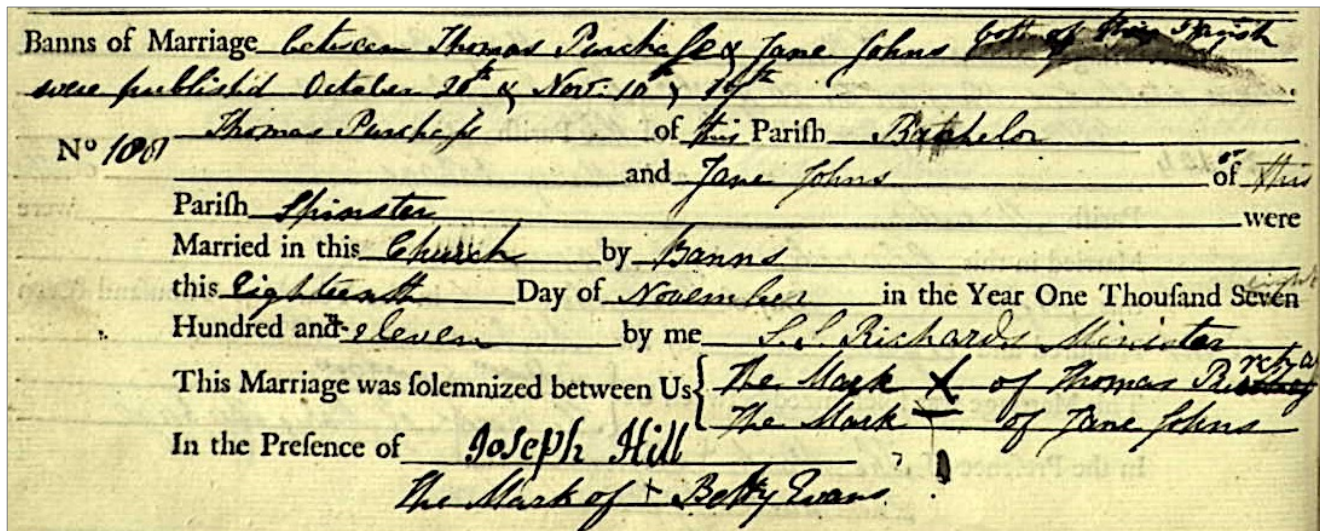 Banns of Marriage between Thomas Purchase & Jane Johns both of this Parish
were publish'd October 20th & Nov: 10th, 17th
Thomas Purchaſs of this Pariſh Bachelor
No 1081
and Jane Johns of this
Pariſh Spinster were
Married in this Church by Banns
this Eighteenth Day of November in the Year One Thouſand Seven eight
Hundred and eleven by me Richards Minister
This Marriage was ſolemnized between Us { The Mark X of Thomas
The Mark of Jane Johns
In the Preſence of Joseph Hill
The Mark of + Betty Evans